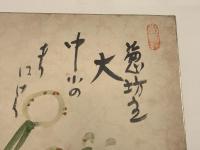 葱坊主
大
中小の
ありにけり